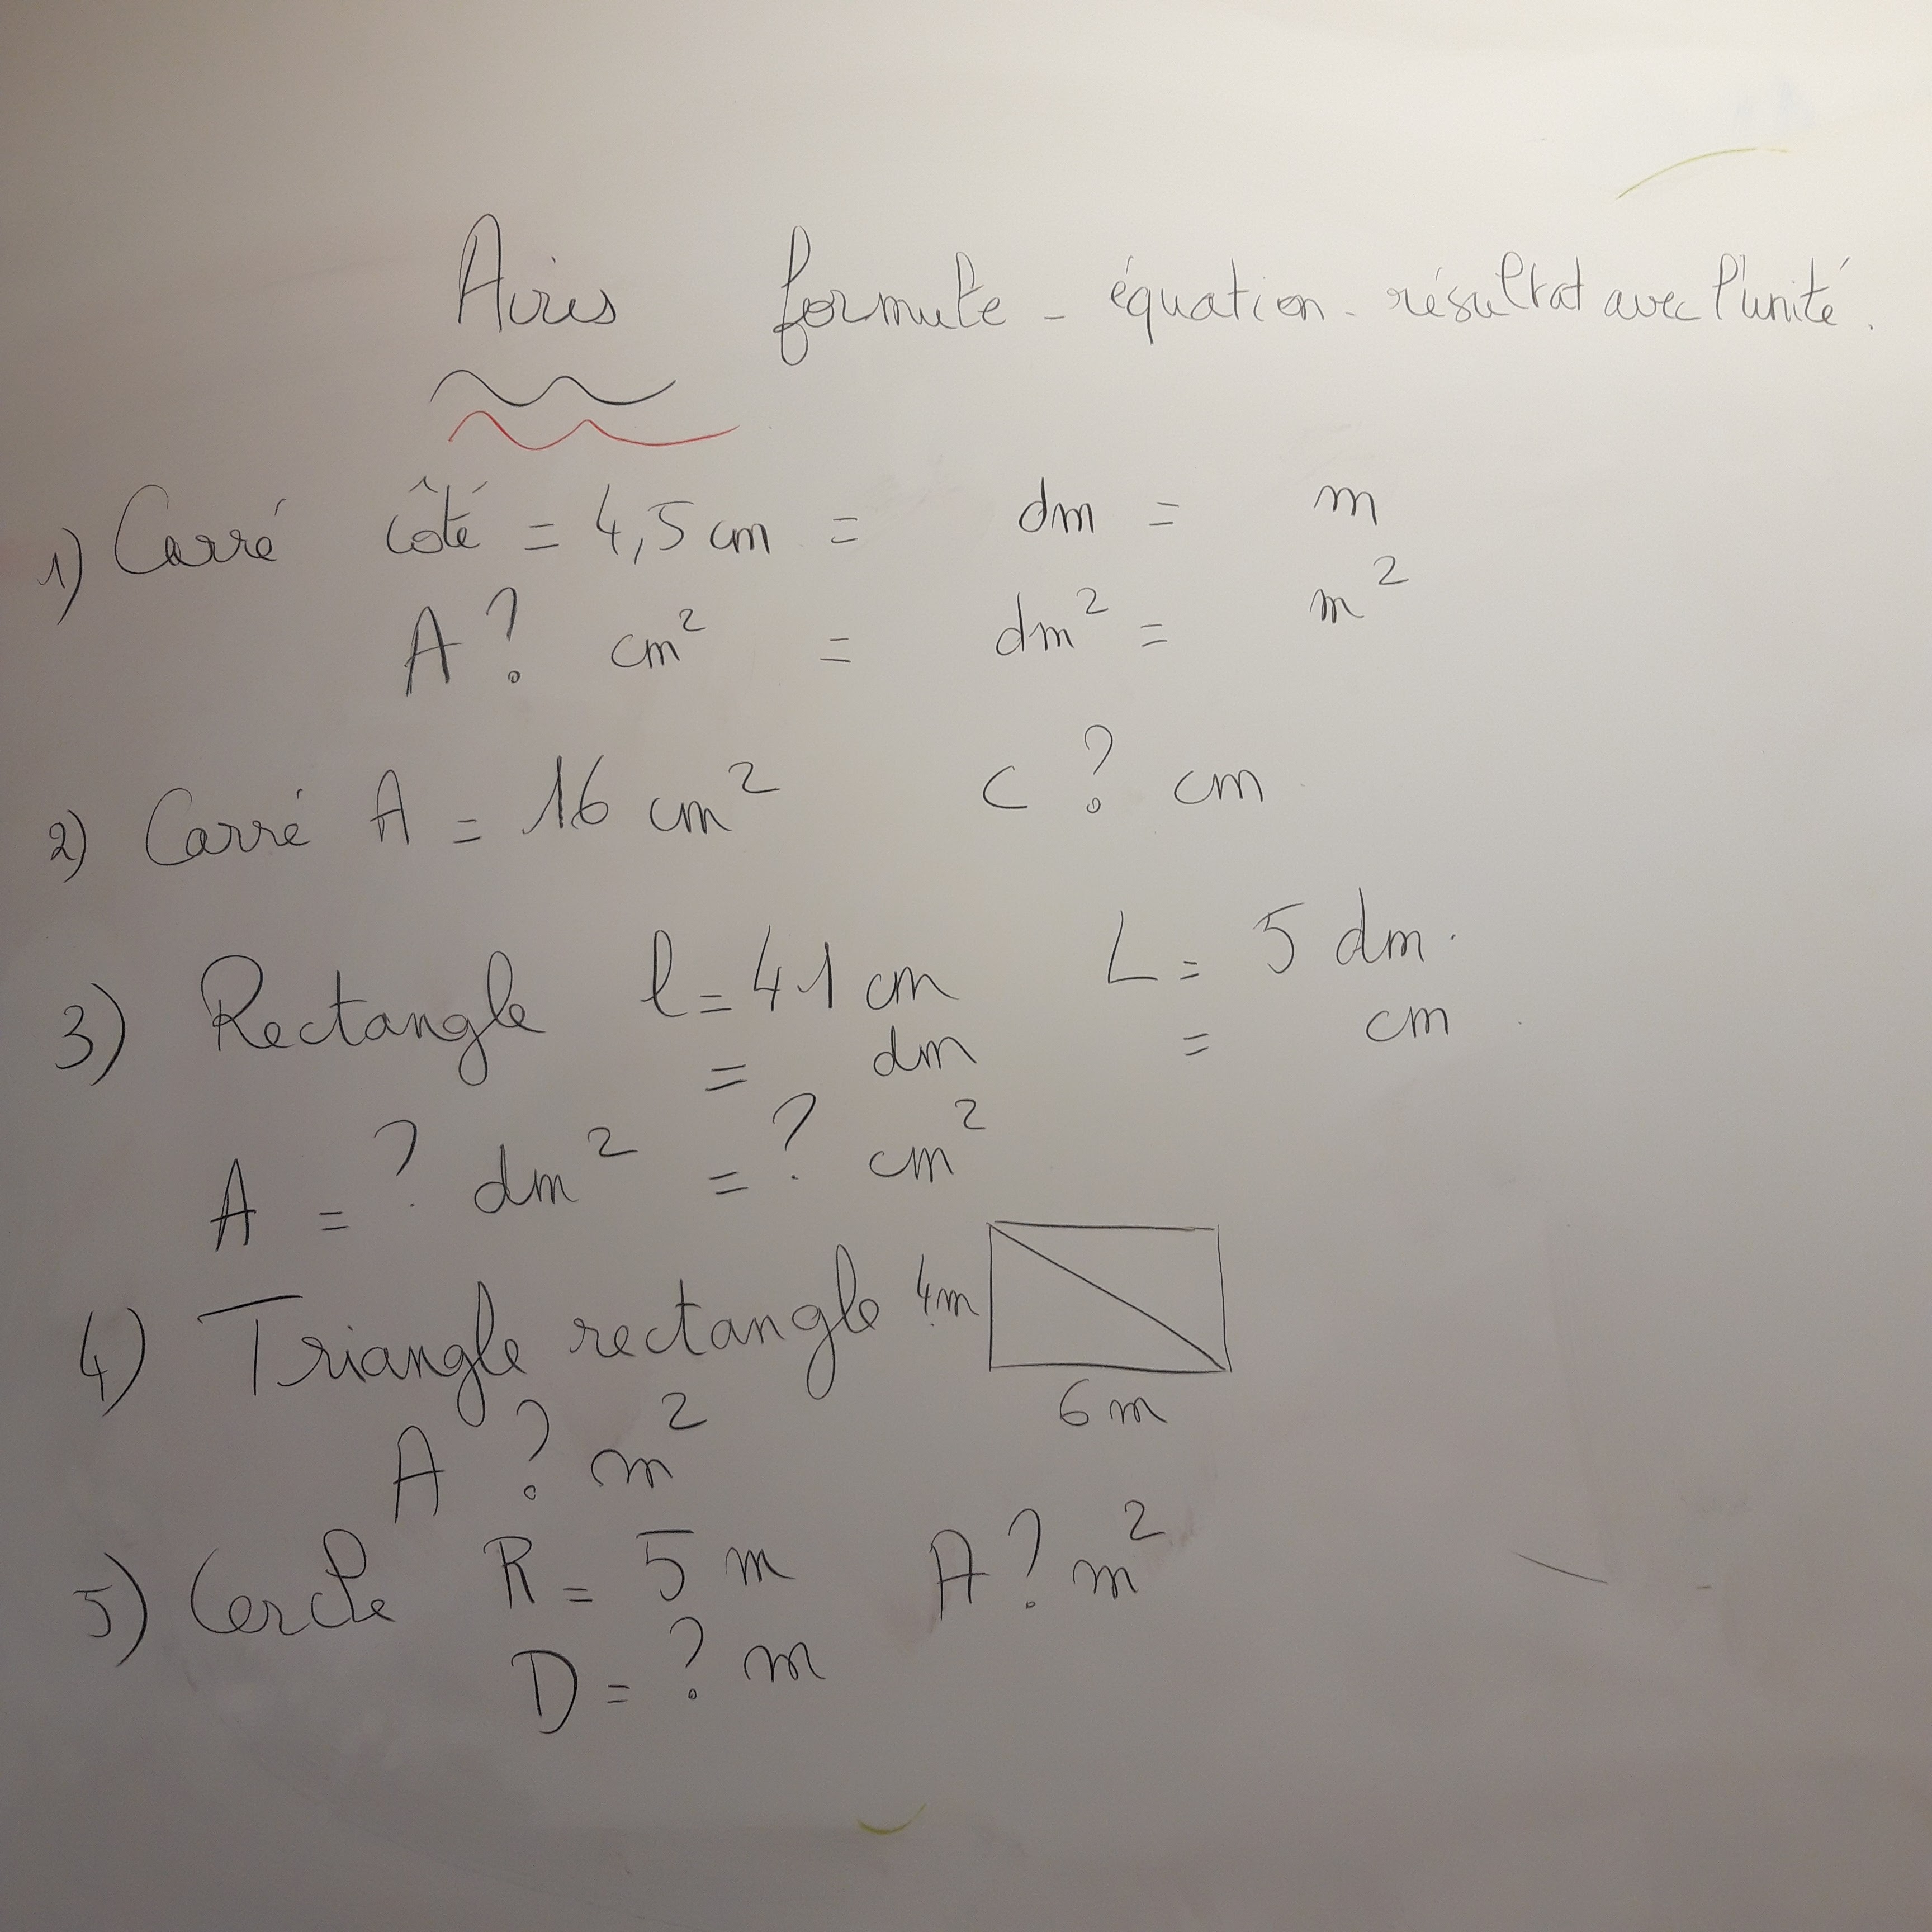 Aires formule - équation - résultat avec l'unité.
1) Carré côté = 4,5 cm = dm = m
A ? cm² = dm² = m²
2) Carré A = 16 cm² c ? cm
3) Rectangle l = 41 cm L = 5 dm.
= dm = cm
A = ? dm² = ? cm²
4) Triangle rectangle 4m
6 m
A ? m²
5) Cercle R = 5 m A ? m²
D = ? m